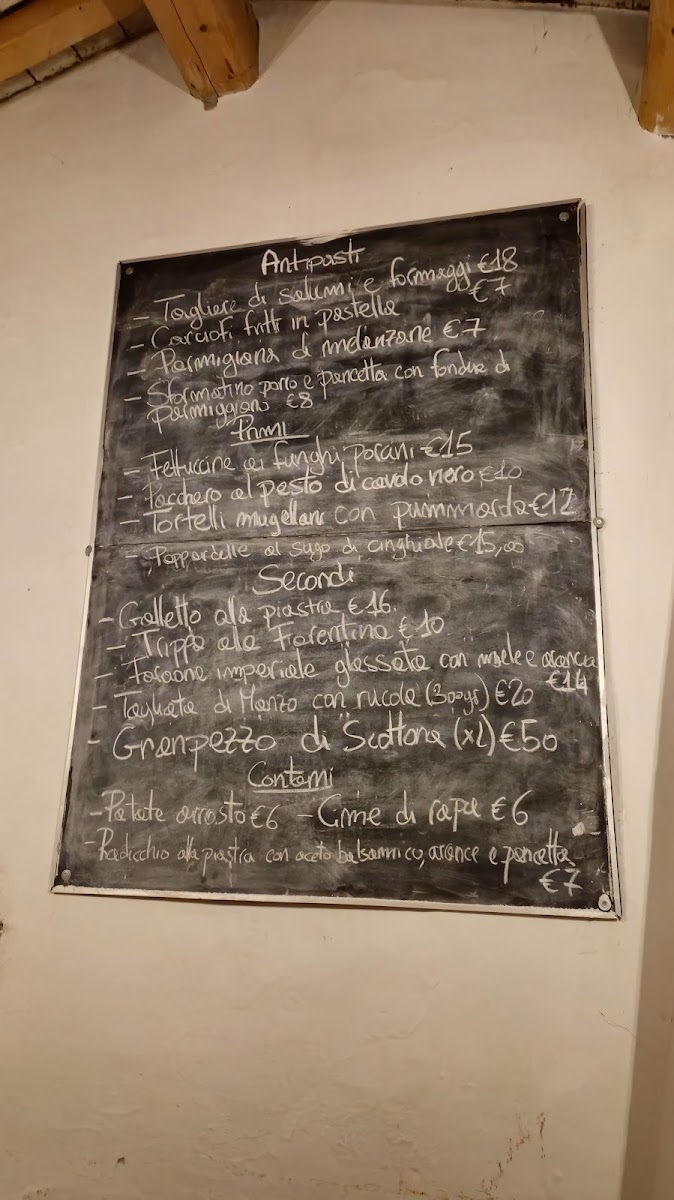 Antipasti
- Tagliere di salumi e formaggi €18
- Carciofi fritti in pastella €7
- Parmigiana di melanzane €7
- Sformatino porro e pancetta con fondue di
parmiggiano €8
Primi
- Fettuccine ai funghi porcini €15
- Pacchero al pesto di cavolo nero €10
- Tortelli mugellani con €12
- Pappardelle al sugo di cinghiale €15,00
Secondi
- Galletto alla piastra €16.
- Trippa alla Fiorentina €10
- Faraone imperiale glassata con miele e arancia
€14
- Tagliata di Manzo con rucola (300gr) €20
- Granpezzo di "Scottona (XL) €50
Contorni
- Patate arrosto €6 - Cime di rapa €6
- Radicchio alla piastra con aceto balsamico, arance e pancetta
€7